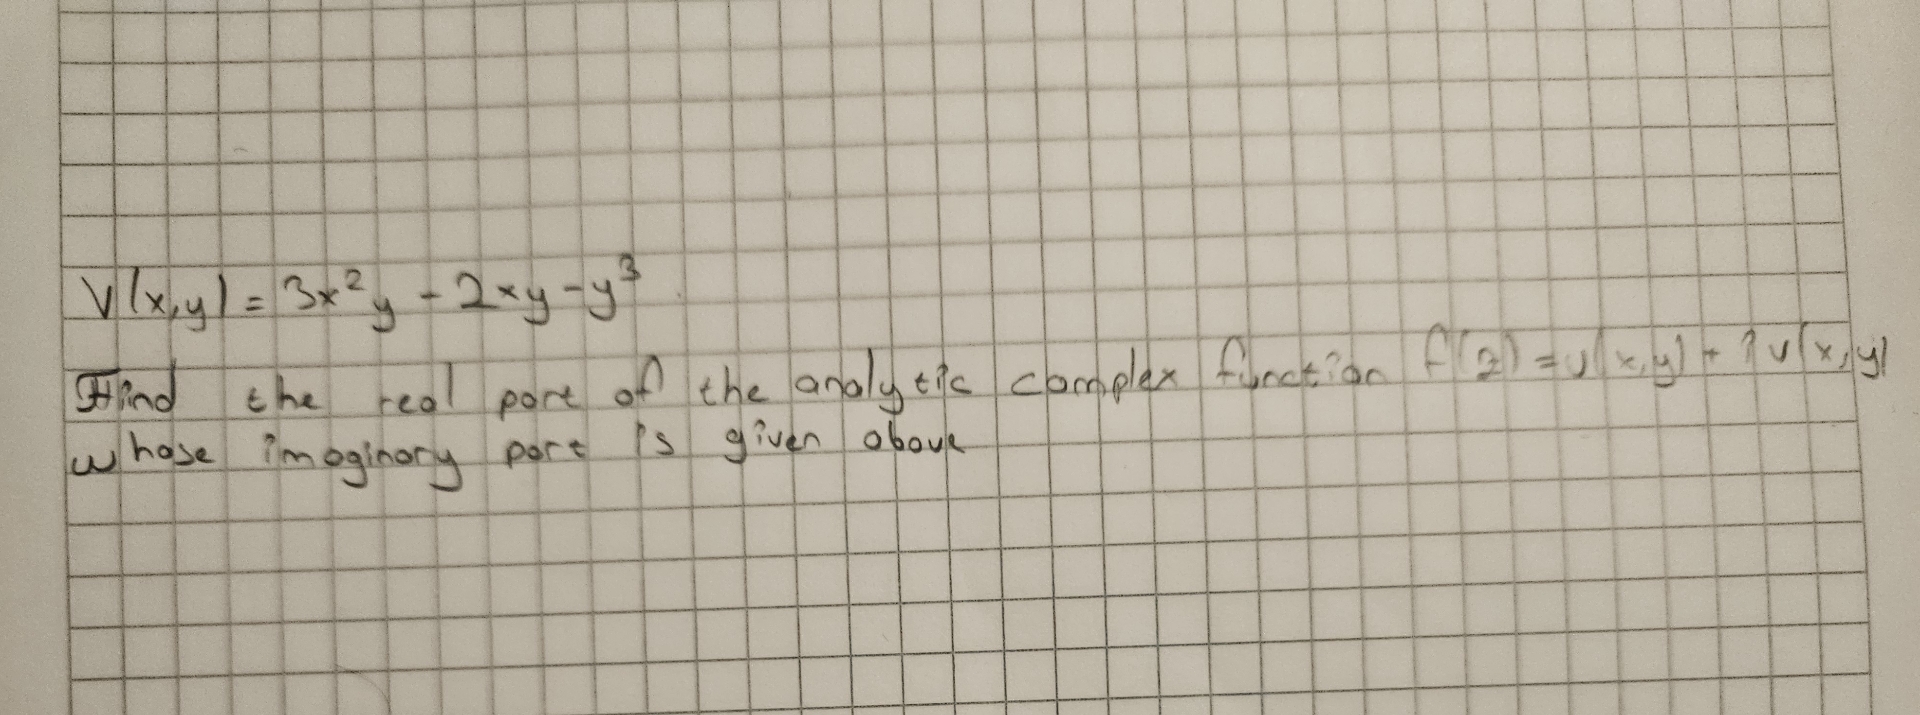 V(x,y) = 3x²y - 2xy - y³
Find the real part of the analytic complex function f(z) = u(x,y) + i v(x,y)
whose imaginary part is given above